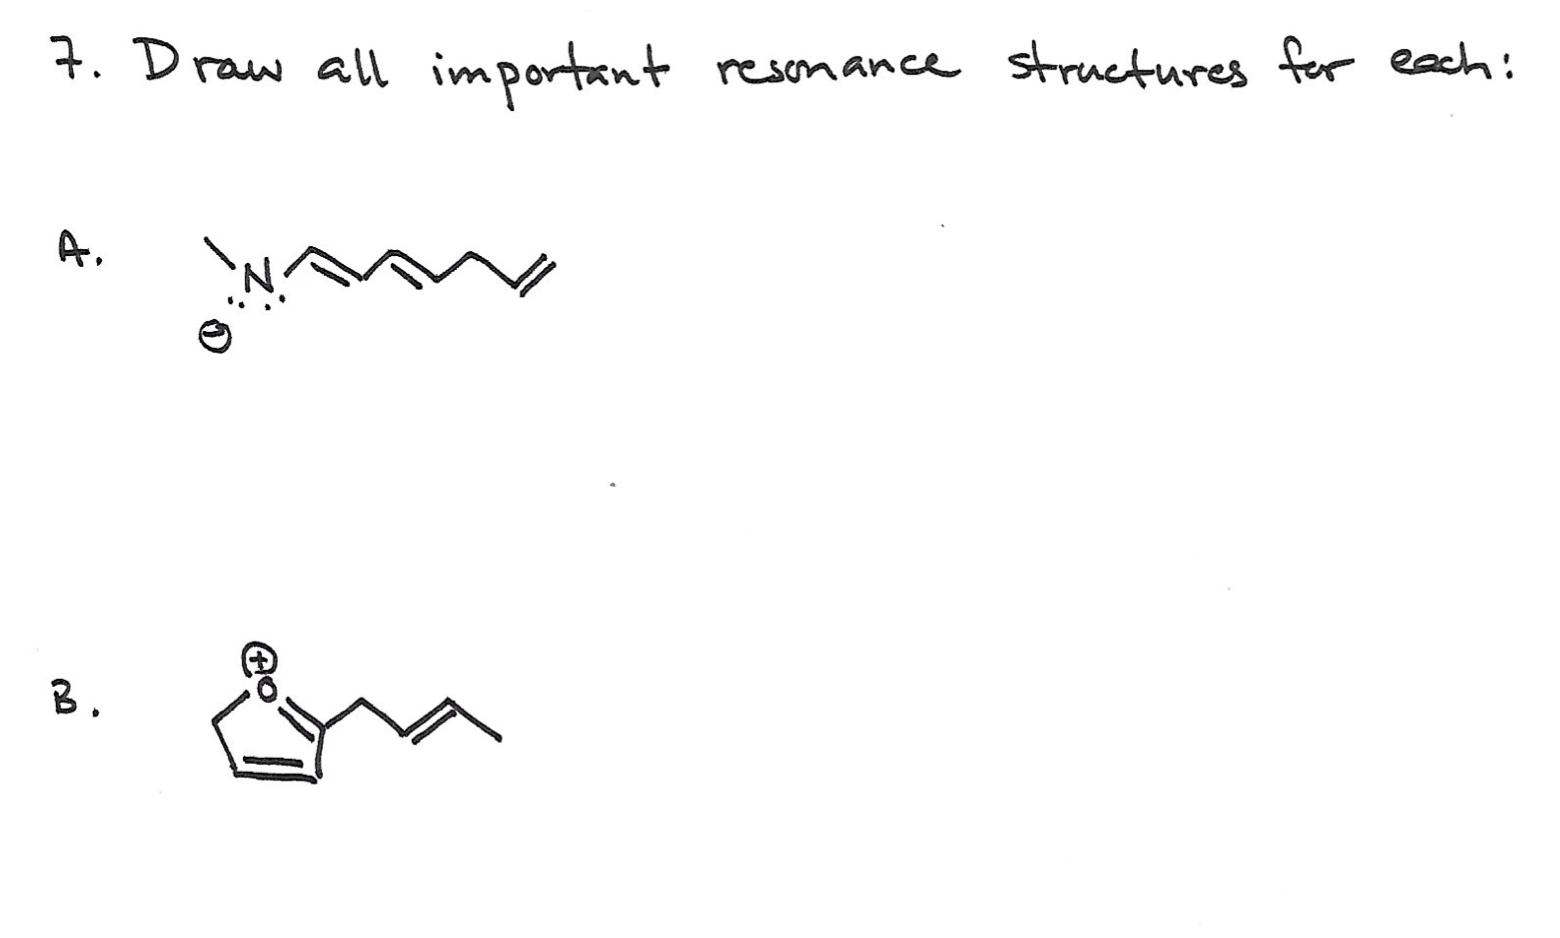 7. Draw all important resonance structures for each:
A.
N
⊖
B.
⊕
O